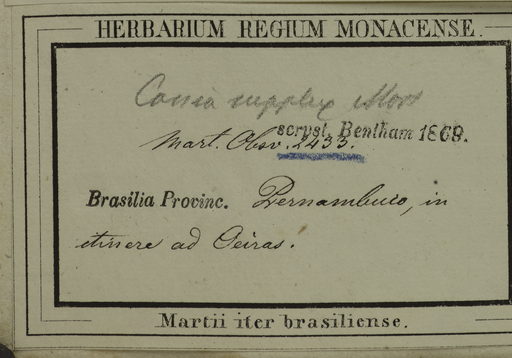 HERBARIUM REGIUM MONACENSE.
Cassia supplex Mart
scrpst. Bentham 1869.
Mart. Obsv. 2433.
Brasilia Provinc. Pernambuco, in
itinere ad Oeiras.
Martii iter brasiliense.